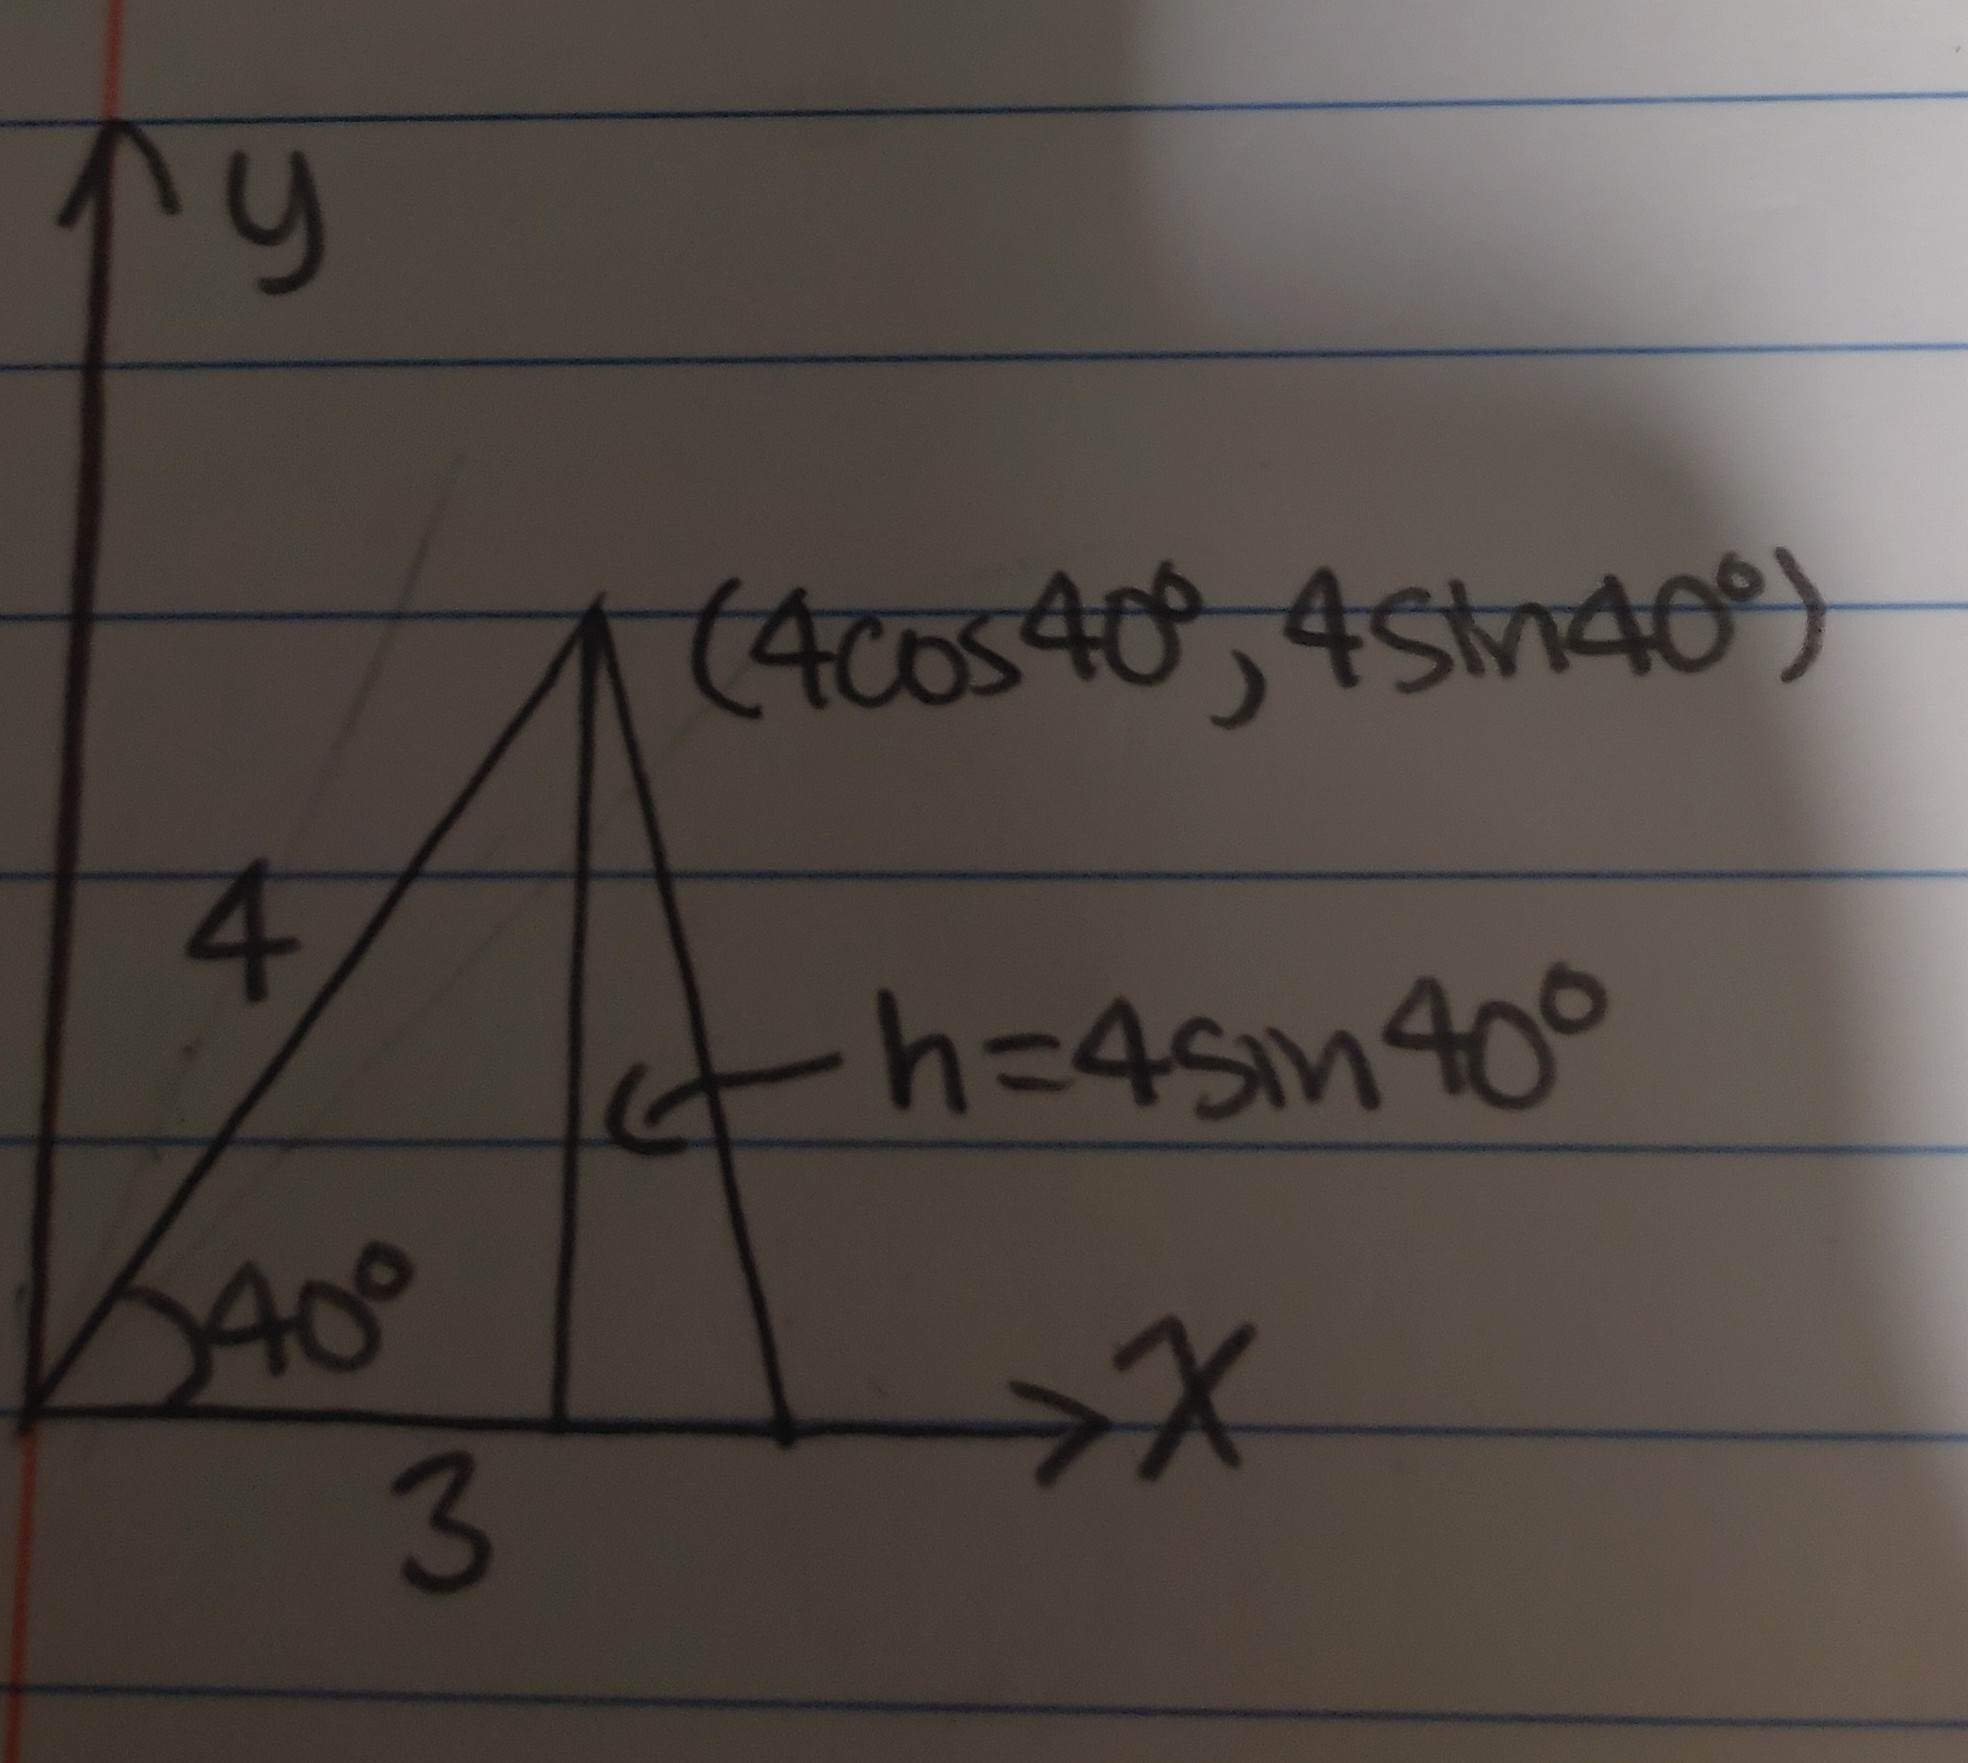 y
(4cos40°, 4sin40°)
4
h=4sin40°
40°
x
3